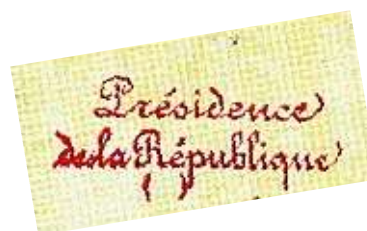 Présidence
de la République